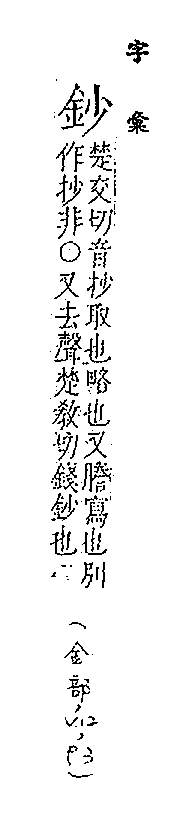 字彙
鈔
楚交切音抄取也略也又謄寫也別
作抄非○又去聲楚教切錢鈔也
(金部,V.12,P.3)